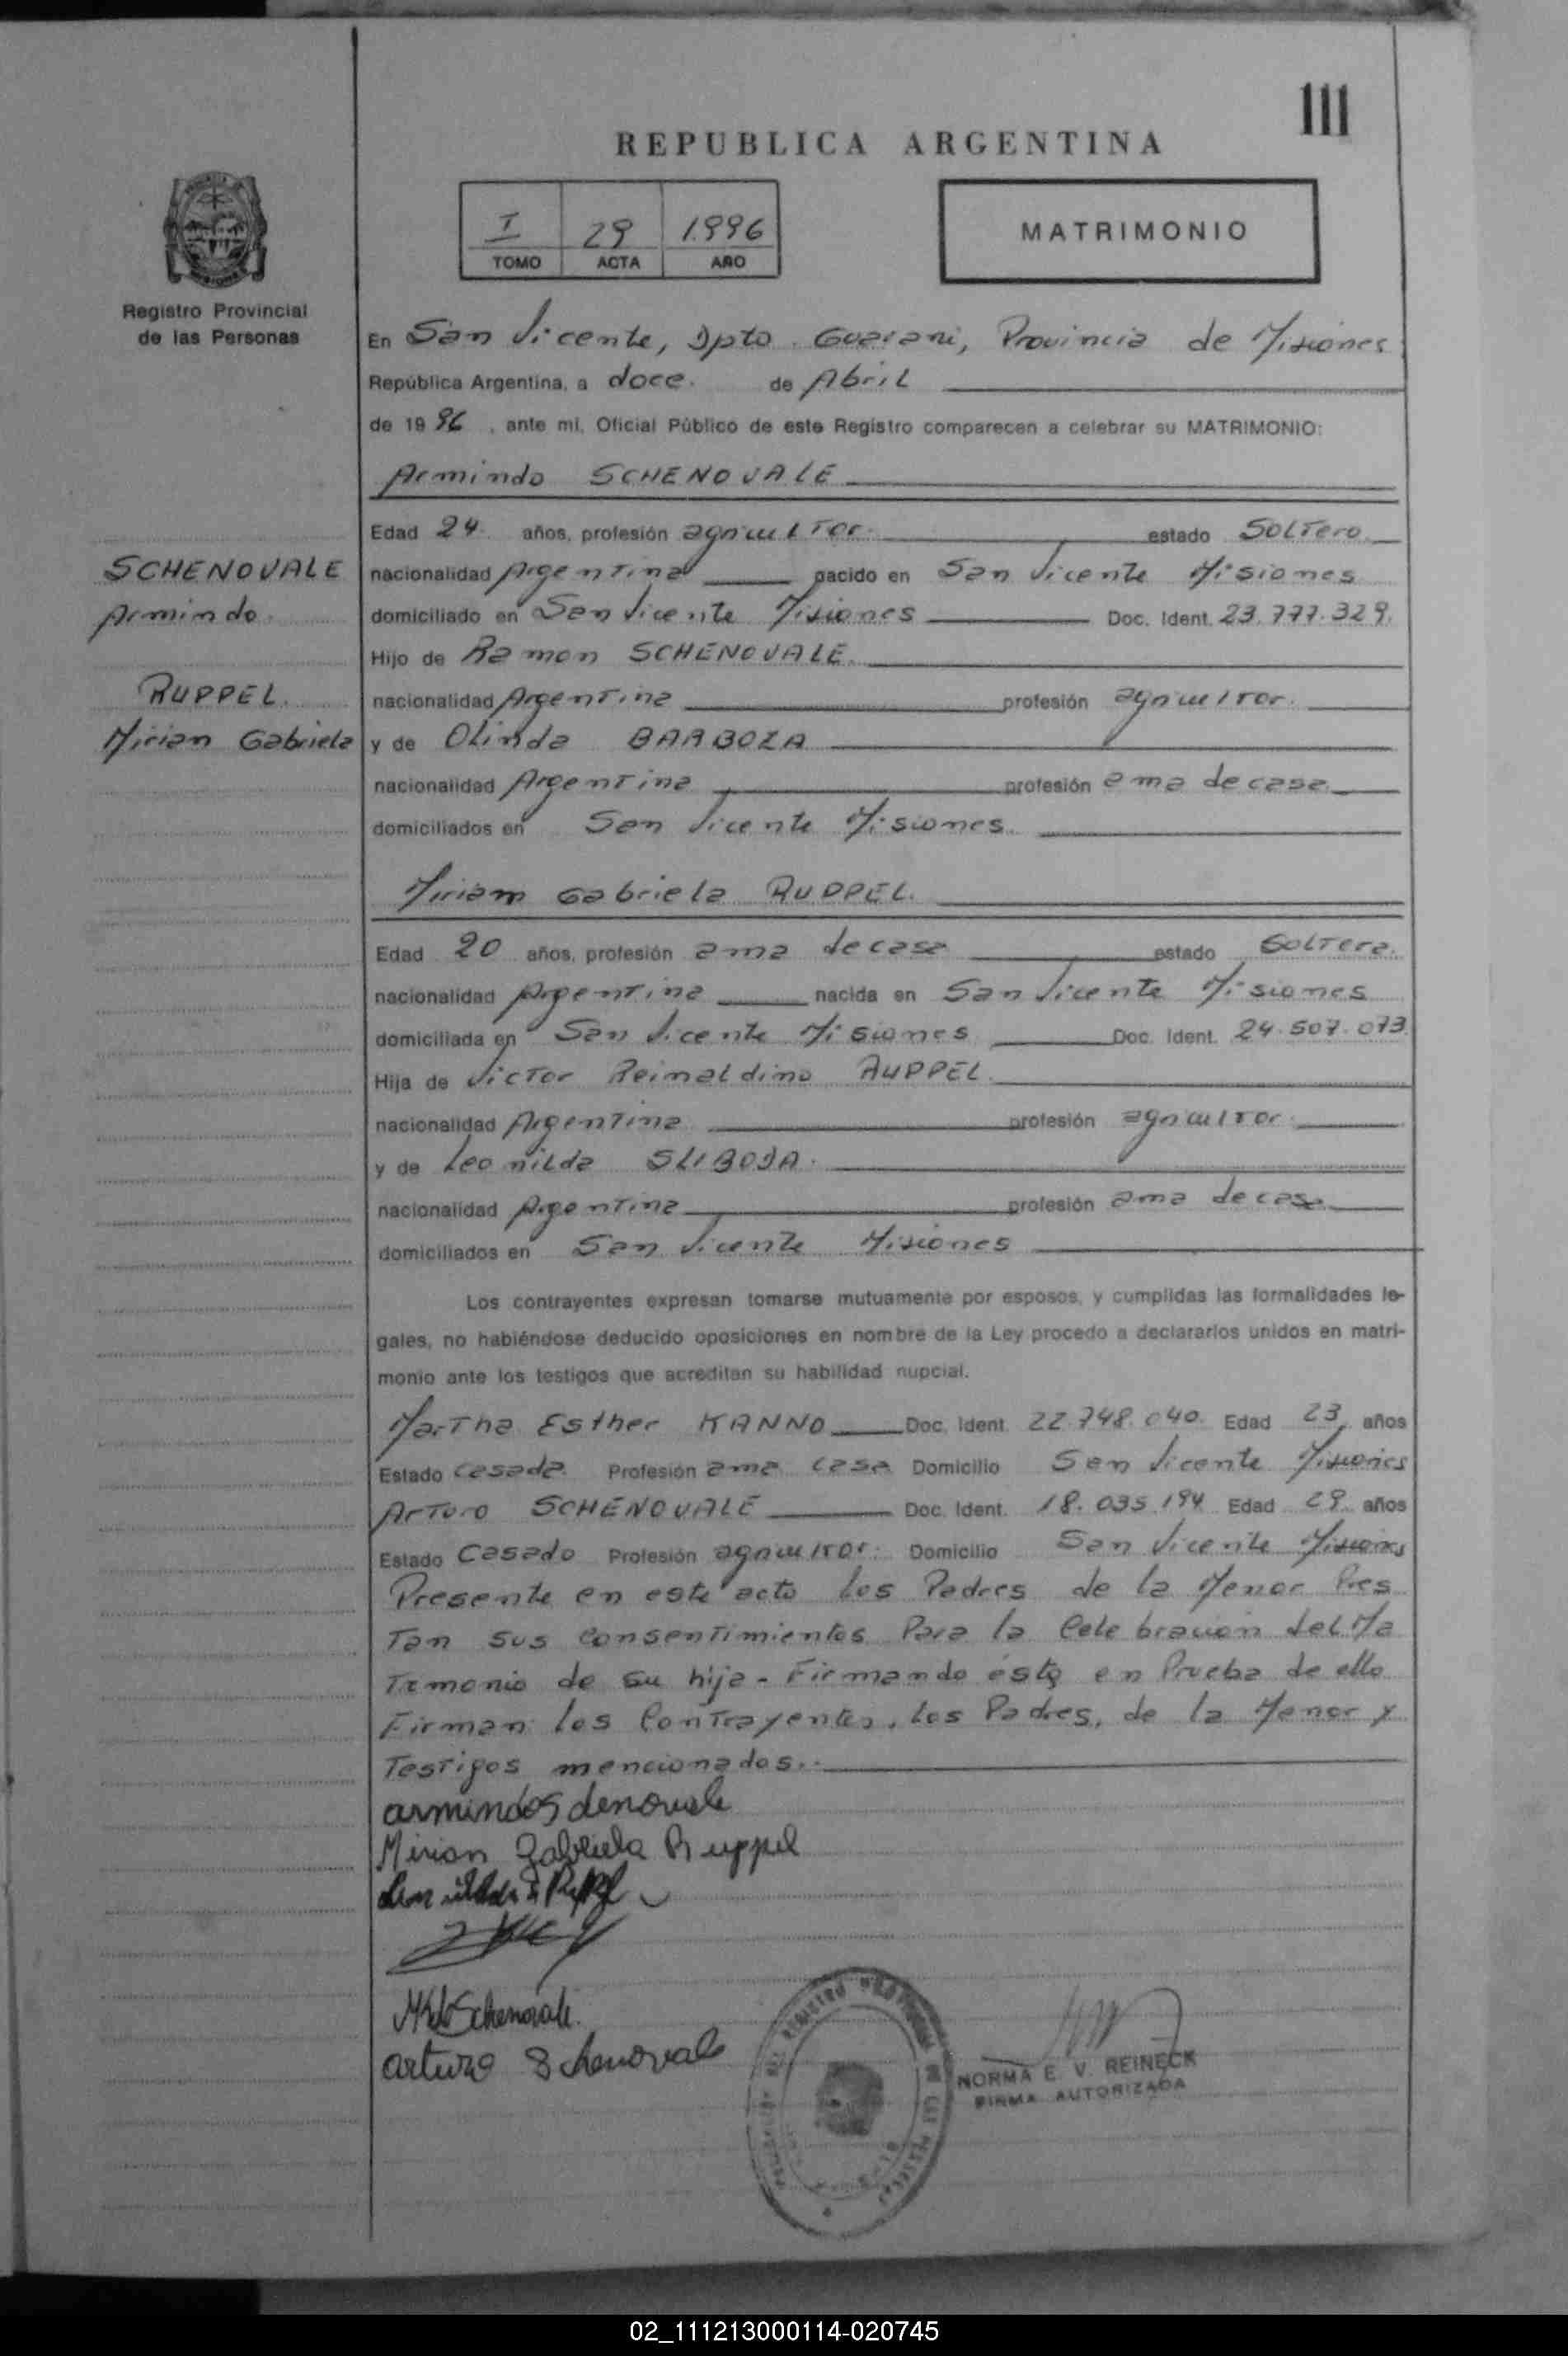 111
REPUBLICA ARGENTINA
I 29 1.996
TOMO ACTA AÑO
MATRIMONIO
Registro Provincial
de las Personas
En San Vicente, Dpto. Guarani, Provincia de Misiones
República Argentina, a doce. de Abril
de 1996, ante mi, Oficial Público de este Registro comparecen a celebrar su MATRIMONIO:
Armindo SCHENOVALE
Edad 24. años, profesión agricultor. estado SOLTero.
SCHENOVALE
nacionalidad Argentina nacido en San Vicente Misiones
Armindo.
domiciliado en San Vicente Misiones Doc. Ident. 23.777.329.
Hijo de Ramon SCHENOVALE.
RUPPEL.
nacionalidad Argentina profesión agricultor.
Mirian Gabriela
y de Olinda BARBOZA
nacionalidad Argentina profesión ama de casa.
domiciliados en San Vicente Misiones.
Miriam Gabriela RUPPEL.
Edad 20 años, profesión ama de casa estado SOLTera.
nacionalidad Argentina nacida en San Vicente Misiones
domiciliada en San Vicente Misiones Doc. Ident. 24.507.073.
Hija de Victor Reinaldino RUPPEL.
nacionalidad Argentina profesión agricultor.
y de Leonilda SLIBODA.
nacionalidad Argentina profesión ama de casa.
domiciliados en San Vicente Misiones
Los contrayentes expresan tomarse mutuamente por esposos, y cumplidas las formalidades le-
gales, no habiéndose deducido oposiciones en nombre de la Ley procedo a declararlos unidos en matri-
monio ante los testigos que acreditan su habilidad nupcial.
Martha Esther KANNO Doc. Ident. 22.748.040. Edad 23, años
Estado Casada. Profesión ama casa Domicilio San Vicente Misiones
Arturo SCHENOVALE Doc. Ident. 18.035.194 Edad 29 años
Estado Casado Profesión agricultor. Domicilio San Vicente Misiones
Presente en este acto los Padres de la Menor Pres
Tan sus consentimientos Para la Celebración del Ma
Trmonio de su hija - Firmando éste en Prueba de ello
Firman los Contrayentes, los Padres, de la Menor y
Testigos mencionados.-
armindo Schenovale
Mirian Gabriela Ruppel
Schenovale.
arturo Schenovale
NORMA E. V. REINECK
FIRMA AUTORIZADA
02_111213000114-020745